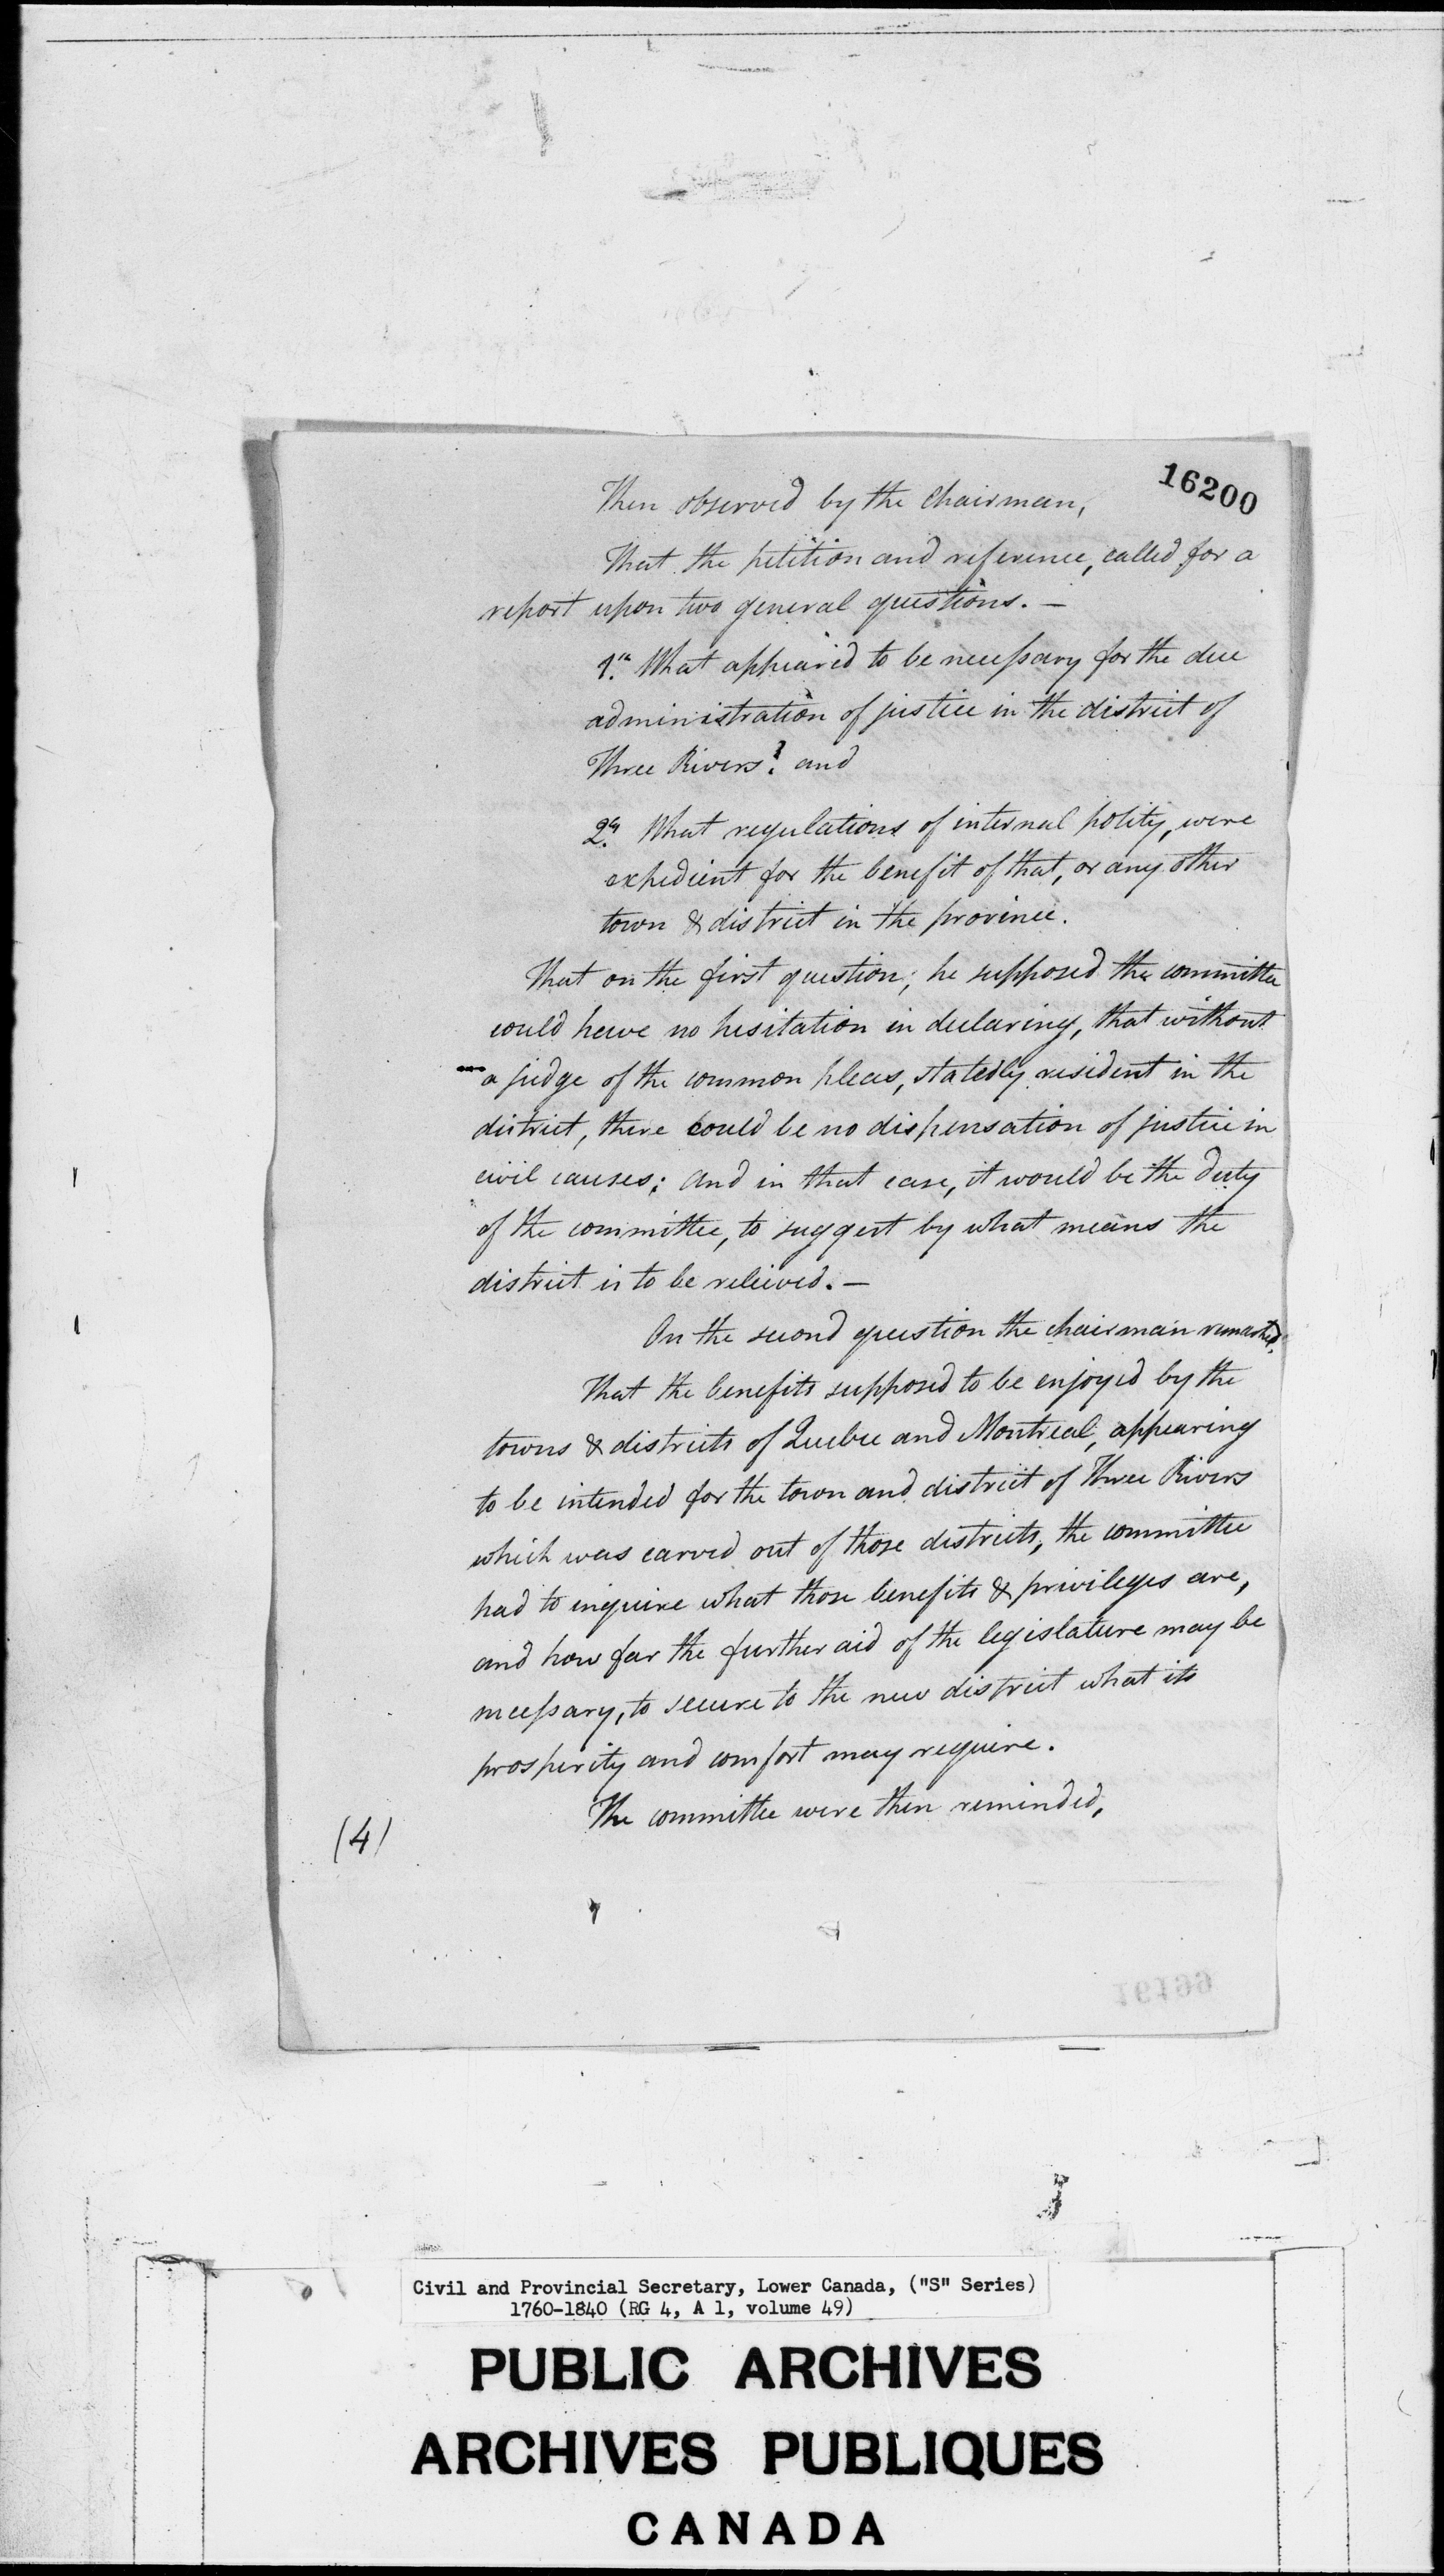 16200
Then observed by the Chairman,
That the petition and reference, called for a
report upon two general questions. —
1.st What appeared to be necessary for the due
administration of justice in the district of
Three Rivers? and
2.d What regulations of internal polity, were
expedient for the benefit of that, or any other
town & district in the province.
That on the first question; he supposed the committee
could have no hesitation in declaring, that without
a judge of the common pleas, statedly resident in the
district, there could be no dispensation of justice in
civil causes; and in that case, it would be the duty
of the committee, to suggest by what means the
district is to be relieved. —
On the second question the chairman remarked,
That the benefits supposed to be enjoyed by the
towns & districts of Quebec and Montreal, appearing
to be intended for the town and district of Three Rivers
which was carved out of those districts, the committee
had to inquire what those benefits & privileges are,
and how far the further aid of the legislature may be
necessary, to secure to the new district what its
prosperity and comfort may require.
The committee were then reminded,
(4)
16199
Civil and Provincial Secretary, Lower Canada, ("S" Series)
1760-1840 (RG 4, A 1, volume 49)
PUBLIC ARCHIVES
ARCHIVES PUBLIQUES
CANADA